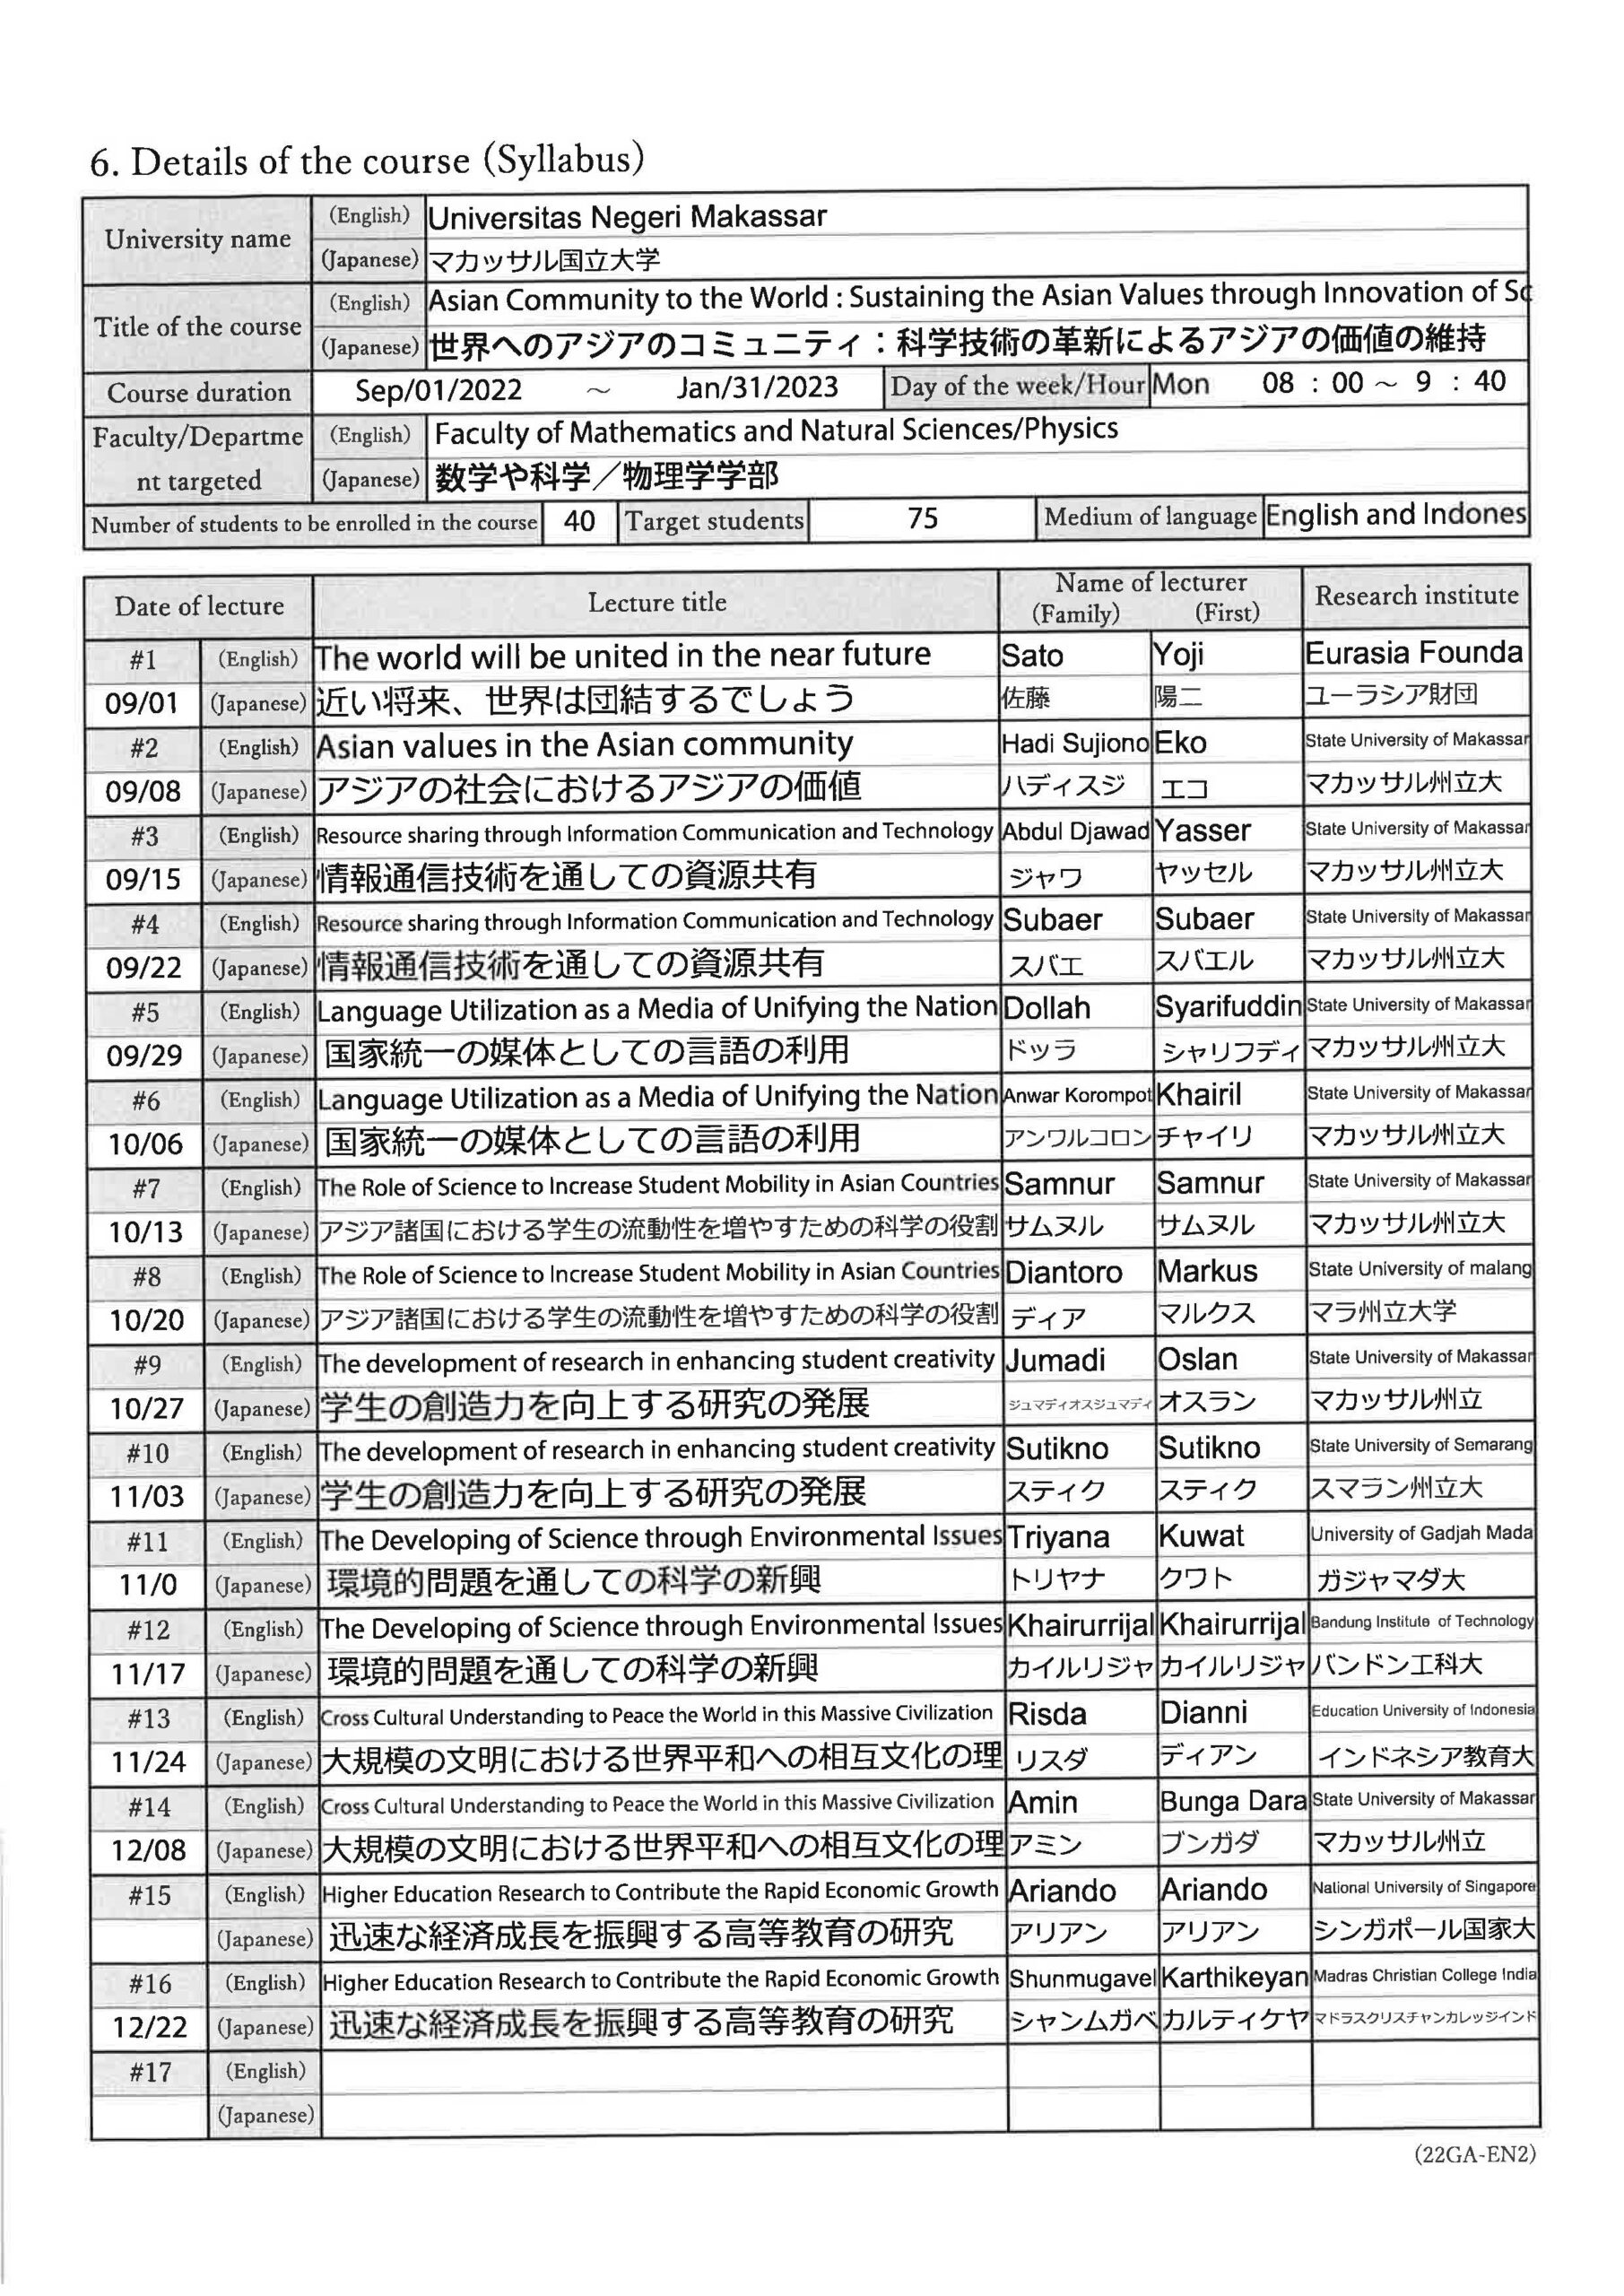 6. Details of the course (Syllabus)
University name (English) Universitas Negeri Makassar
(Japanese) マカッサル国立大学
Title of the course (English) Asian Community to the World : Sustaining the Asian Values through Innovation of Sc
(Japanese) 世界へのアジアのコミュニティ：科学技術の革新によるアジアの価値の維持
Course duration Sep/01/2022 ～ Jan/31/2023 Day of the week/Hour Mon 08 : 00 ～ 9 : 40
Faculty/Departme (English) Faculty of Mathematics and Natural Sciences/Physics
nt targeted (Japanese) 数学や科学／物理学学部
Number of students to be enrolled in the course 40 Target students 75 Medium of language English and Indones
Date of lecture Lecture title Name of lecturer Research institute
(Family) (First)
#1 (English) The world will be united in the near future Sato Yoji Eurasia Founda
09/01 (Japanese) 近い将来、世界は団結するでしょう 佐藤 陽二 ユーラシア財団
#2 (English) Asian values in the Asian community Hadi Sujiono Eko State University of Makassar
09/08 (Japanese) アジアの社会におけるアジアの価値 ハディスジ エコ マカッサル州立大
#3 (English) Resource sharing through Information Communication and Technology Abdul Djawad Yasser State University of Makassar
09/15 (Japanese) 情報通信技術を通しての資源共有 ジャワ ヤッセル マカッサル州立大
#4 (English) Resource sharing through Information Communication and Technology Subaer Subaer State University of Makassar
09/22 (Japanese) 情報通信技術を通しての資源共有 スバエ スバエル マカッサル州立大
#5 (English) Language Utilization as a Media of Unifying the Nation Dollah Syarifuddin State University of Makassar
09/29 (Japanese) 国家統一の媒体としての言語の利用 ドッラ シャリフディ マカッサル州立大
#6 (English) Language Utilization as a Media of Unifying the Nation Anwar Korompot Khairil State University of Makassar
10/06 (Japanese) 国家統一の媒体としての言語の利用 アンワルコロン チャイリ マカッサル州立大
#7 (English) The Role of Science to Increase Student Mobility in Asian Countries Samnur Samnur State University of Makassar
10/13 (Japanese) アジア諸国における学生の流動性を増やすための科学の役割 サムヌル サムヌル マカッサル州立大
#8 (English) The Role of Science to Increase Student Mobility in Asian Countries Diantoro Markus State University of malang
10/20 (Japanese) アジア諸国における学生の流動性を増やすための科学の役割 ディア マルクス マラ州立大学
#9 (English) The development of research in enhancing student creativity Jumadi Oslan State University of Makassar
10/27 (Japanese) 学生の創造力を向上する研究の発展 ジュマディオスジュマディ オスラン マカッサル州立
#10 (English) The development of research in enhancing student creativity Sutikno Sutikno State University of Semarang
11/03 (Japanese) 学生の創造力を向上する研究の発展 スティク スティク スマラン州立大
#11 (English) The Developing of Science through Environmental Issues Triyana Kuwat University of Gadjah Mada
11/0 (Japanese) 環境的問題を通しての科学の新興 トリヤナ クワト ガジャマダ大
#12 (English) The Developing of Science through Environmental Issues Khairurrijal Khairurrijal Bandung Institute of Technology
11/17 (Japanese) 環境的問題を通しての科学の新興 カイルリジャ カイルリジャ バンドン工科大
#13 (English) Cross Cultural Understanding to Peace the World in this Massive Civilization Risda Dianni Education University of Indonesia
11/24 (Japanese) 大規模の文明における世界平和への相互文化の理 リスダ ディアン インドネシア教育大
#14 (English) Cross Cultural Understanding to Peace the World in this Massive Civilization Amin Bunga Dara State University of Makassar
12/08 (Japanese) 大規模の文明における世界平和への相互文化の理 アミン ブンガダ マカッサル州立
#15 (English) Higher Education Research to Contribute the Rapid Economic Growth Ariando Ariando National University of Singapore
(Japanese) 迅速な経済成長を振興する高等教育の研究 アリアン アリアン シンガポール国家大
#16 (English) Higher Education Research to Contribute the Rapid Economic Growth Shunmugavel Karthikeyan Madras Christian College India
12/22 (Japanese) 迅速な経済成長を振興する高等教育の研究 シャンムガベ カルティケヤ マドラスクリスチャンカレッジインド
#17 (English)
(Japanese)
(22GA-EN2)